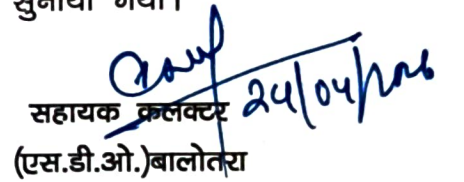 सुनाया गया।
24/04/2026
सहायक कलक्टर
(एस.डी.ओ.)बालोतरा